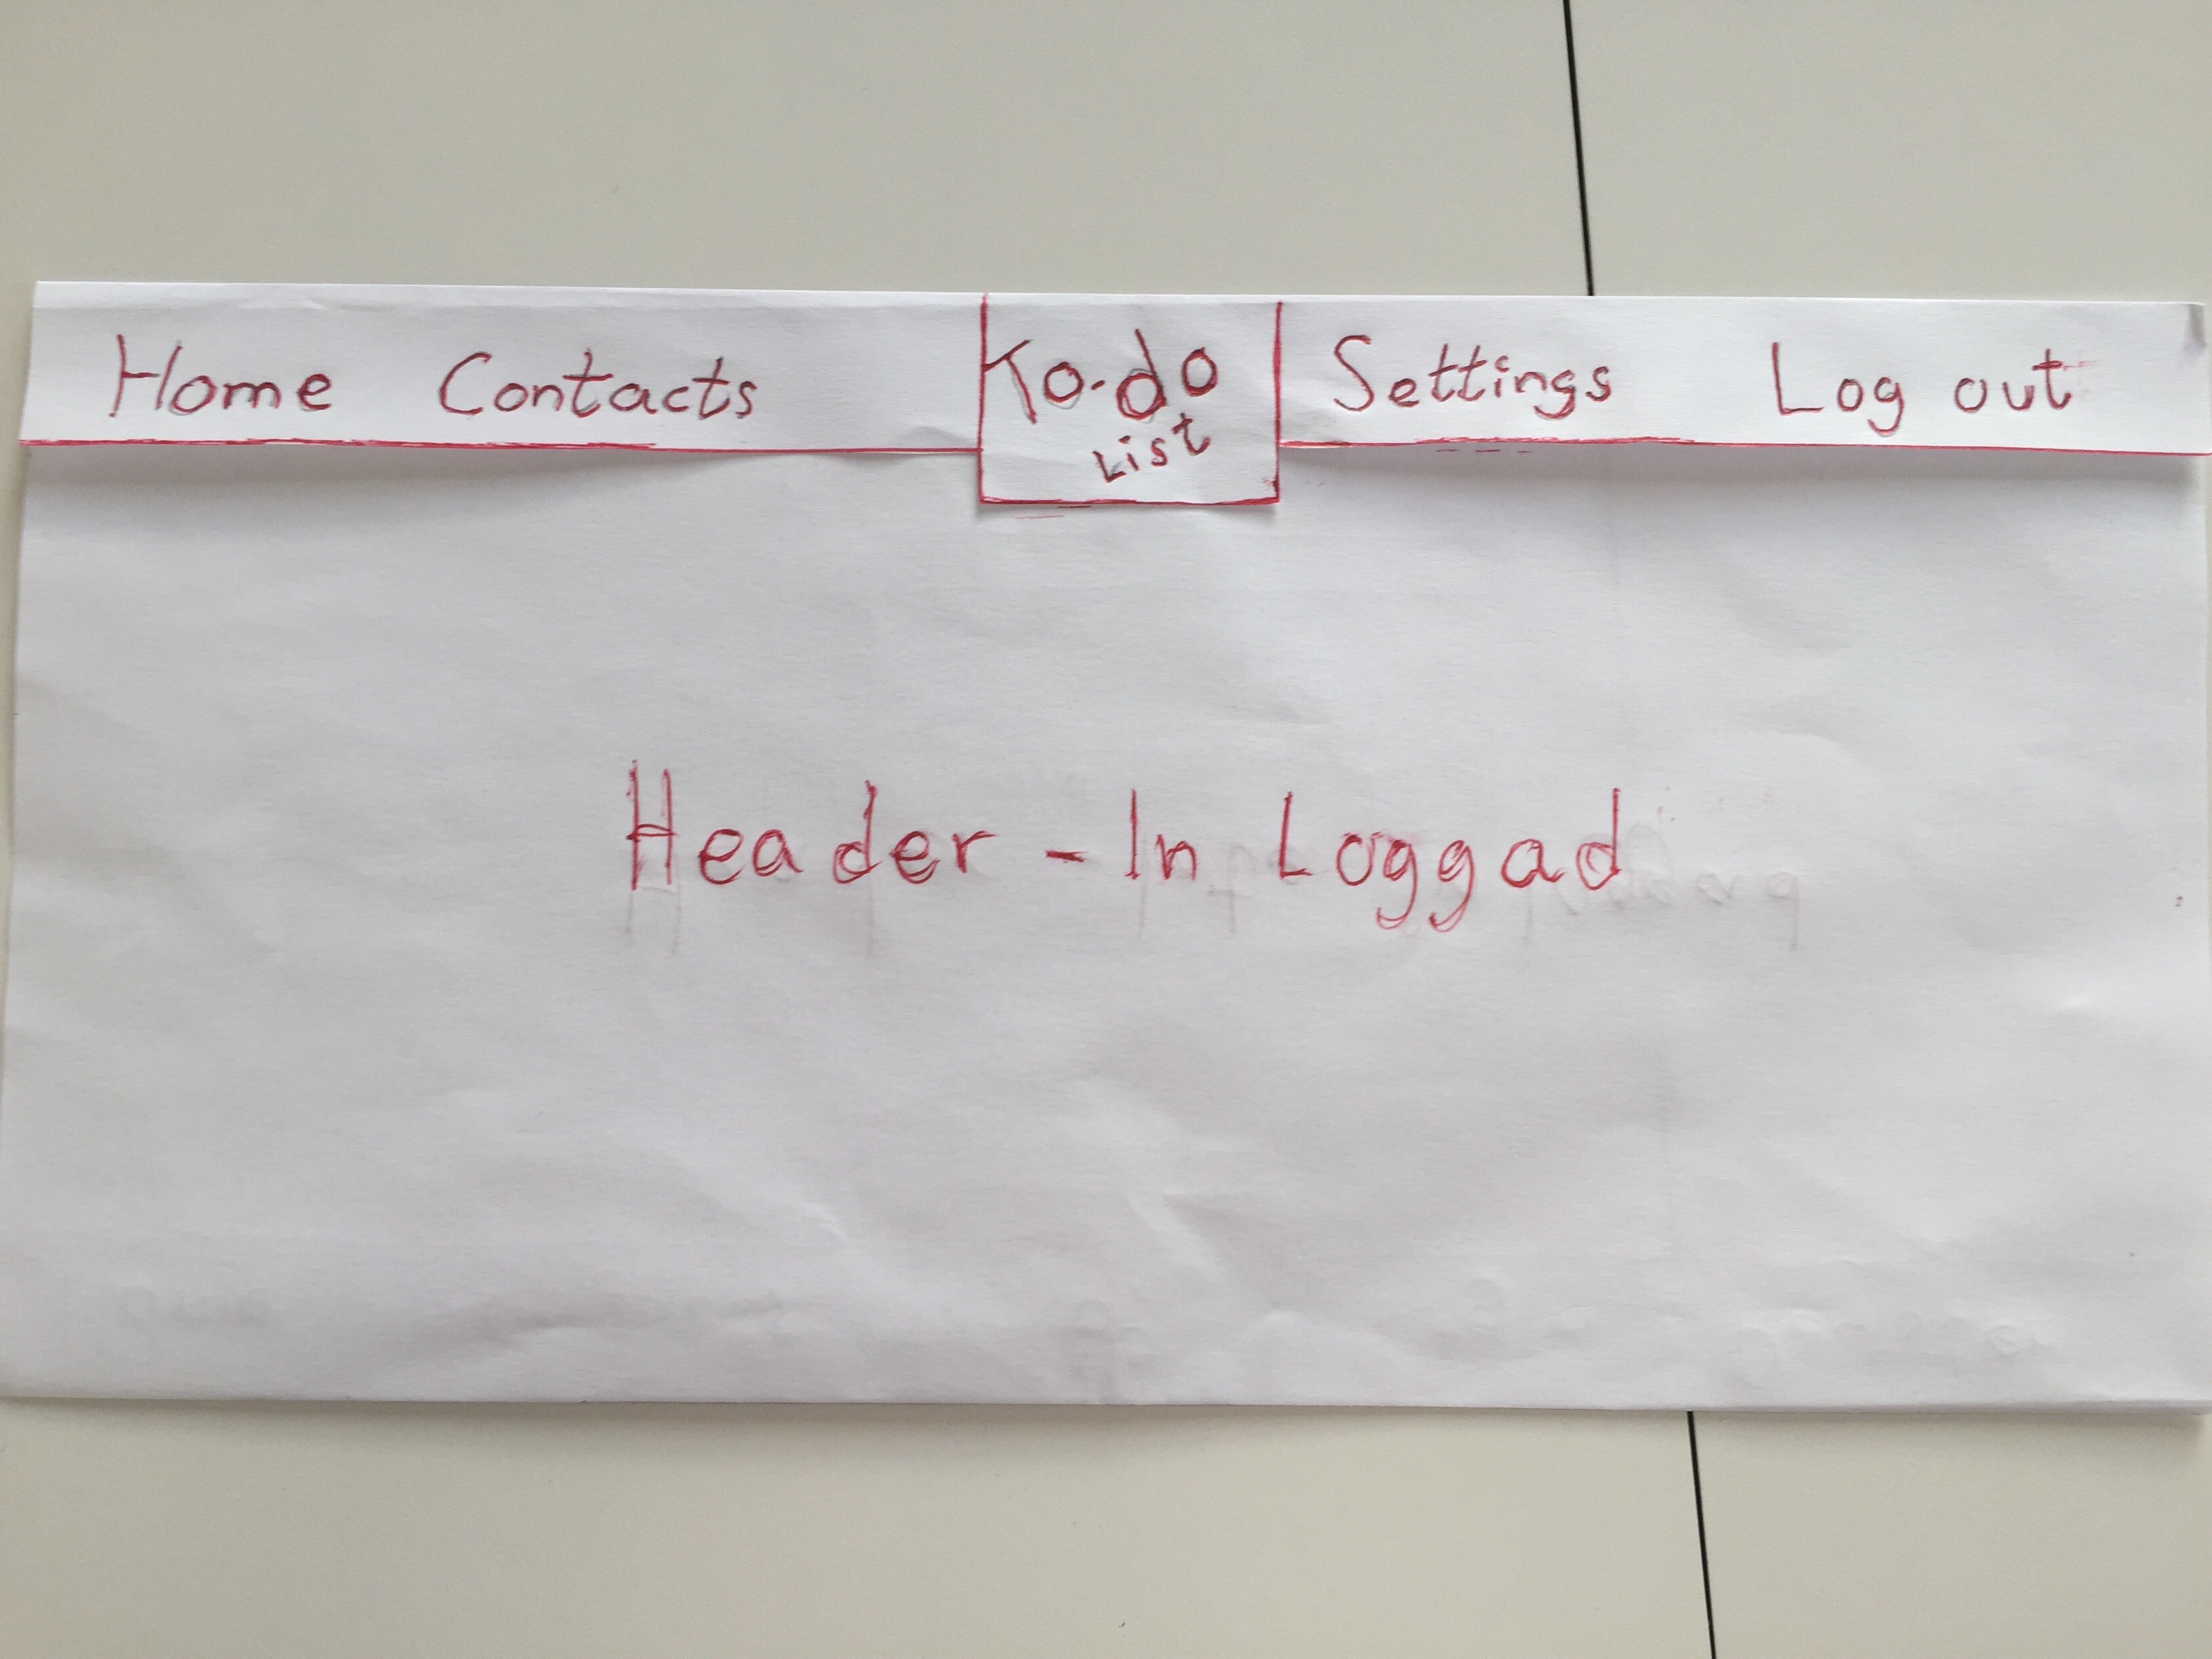 Home Contacts To-do Settings Log out
List
Header - In Loggad